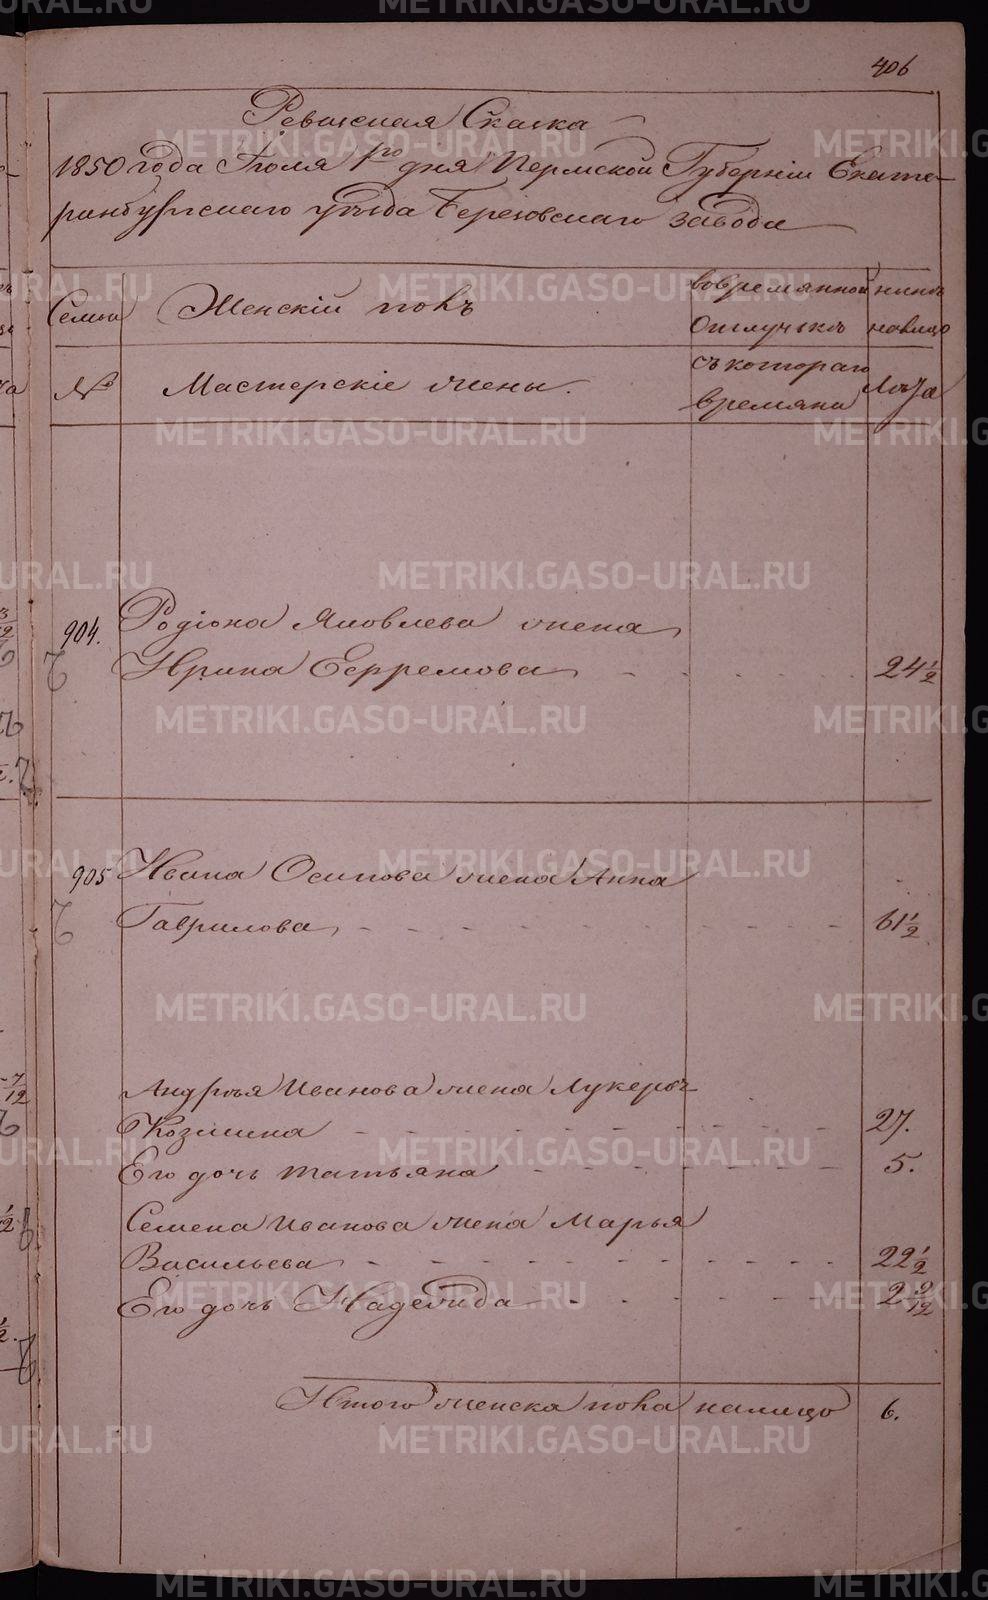 406
Ревизская Сказка
1850 года Июля 1го дня Пермской Губернiи Екате-
ринбургскаго уѣзда Березовскаго завода
Семьи Женскiй полъ во временной нынѣ
отлучкѣ налицо
№ Мастерскiе жены. съ котораго Лѣта
времяни
904. Родiона Яковлева жена
Ирина Ефремова 24 1/2
905 Ивана Осипова жена Анна
Гаврилова 61 1/2
Андрѣя Иванова жена Лукерья
Козмина 27.
Его дочь Татьяна 5.
Семена Иванова жена Марья
Васильева 22 1/2
Его дочь Надежда 2 9/12
Итого женска пола налицо 6.
METRIKI.GASO-URAL.RU